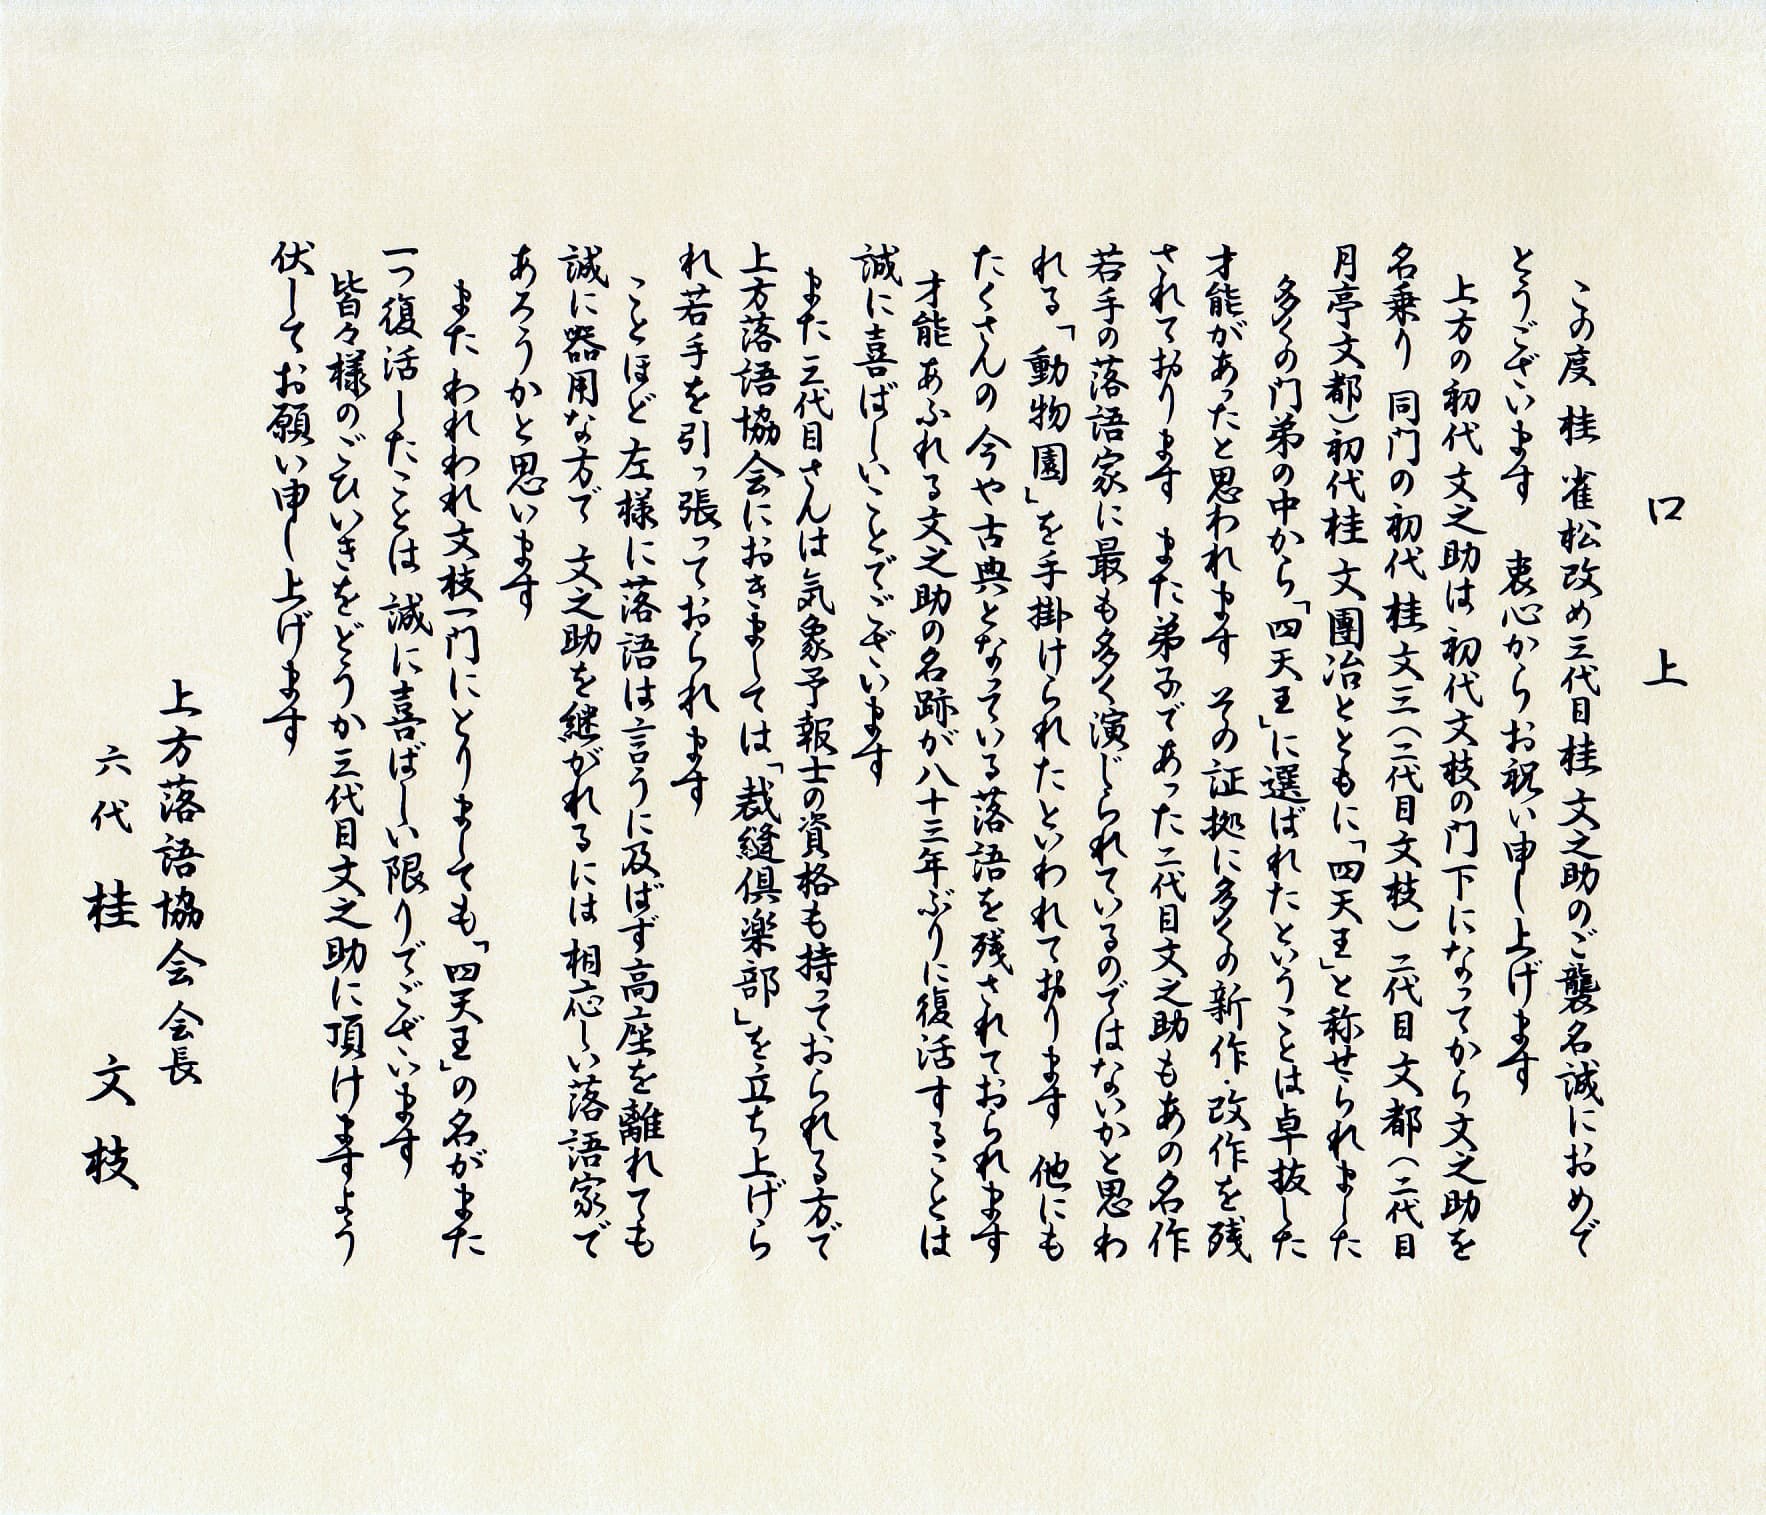 口上
この度 桂 雀松改め三代目桂 文之助のご襲名誠におめで
とうございます 衷心からお祝い申し上げます
上方の初代文之助は初代文枝の門下になってから文之助を
名乗り 同門の初代桂文三(二代目文枝)二代目文都(二代目
月亭文都)初代桂文團治とともに「四天王」と称せられました
多くの門弟の中から「四天王」に選ばれたということは卓抜した
才能があったと思われます その証拠に多くの新作・改作を残
されております また弟子であった二代目文之助もあの名作
若手の落語家に最も多く演じられているのではないかと思わ
れる「動物園」を手掛けられたといわれております 他にも
たくさんの今や古典となっている落語を残されておられます
才能あふれる文之助の名跡が八十三年ぶりに復活することは
誠に喜ばしいことでございます
また三代目さんは気象予報士の資格も持っておられる方で
上方落語協会におきましては「裁縫倶楽部」を立ち上げら
れ若手を引っ張っておられます
ことほど左様に落語は言うに及ばず高座を離れても
誠に器用な方で 文之助を継がれるには相応しい落語家で
あろうかと思います
またわれわれ文枝一門にとりましても「四天王」の名がまた
一つ復活したことは誠に喜ばしい限りでございます
皆々様のごひいきをどうか三代目文之助に頂けますよう
伏してお願い申し上げます
上方落語協会会長
六代 桂 文枝